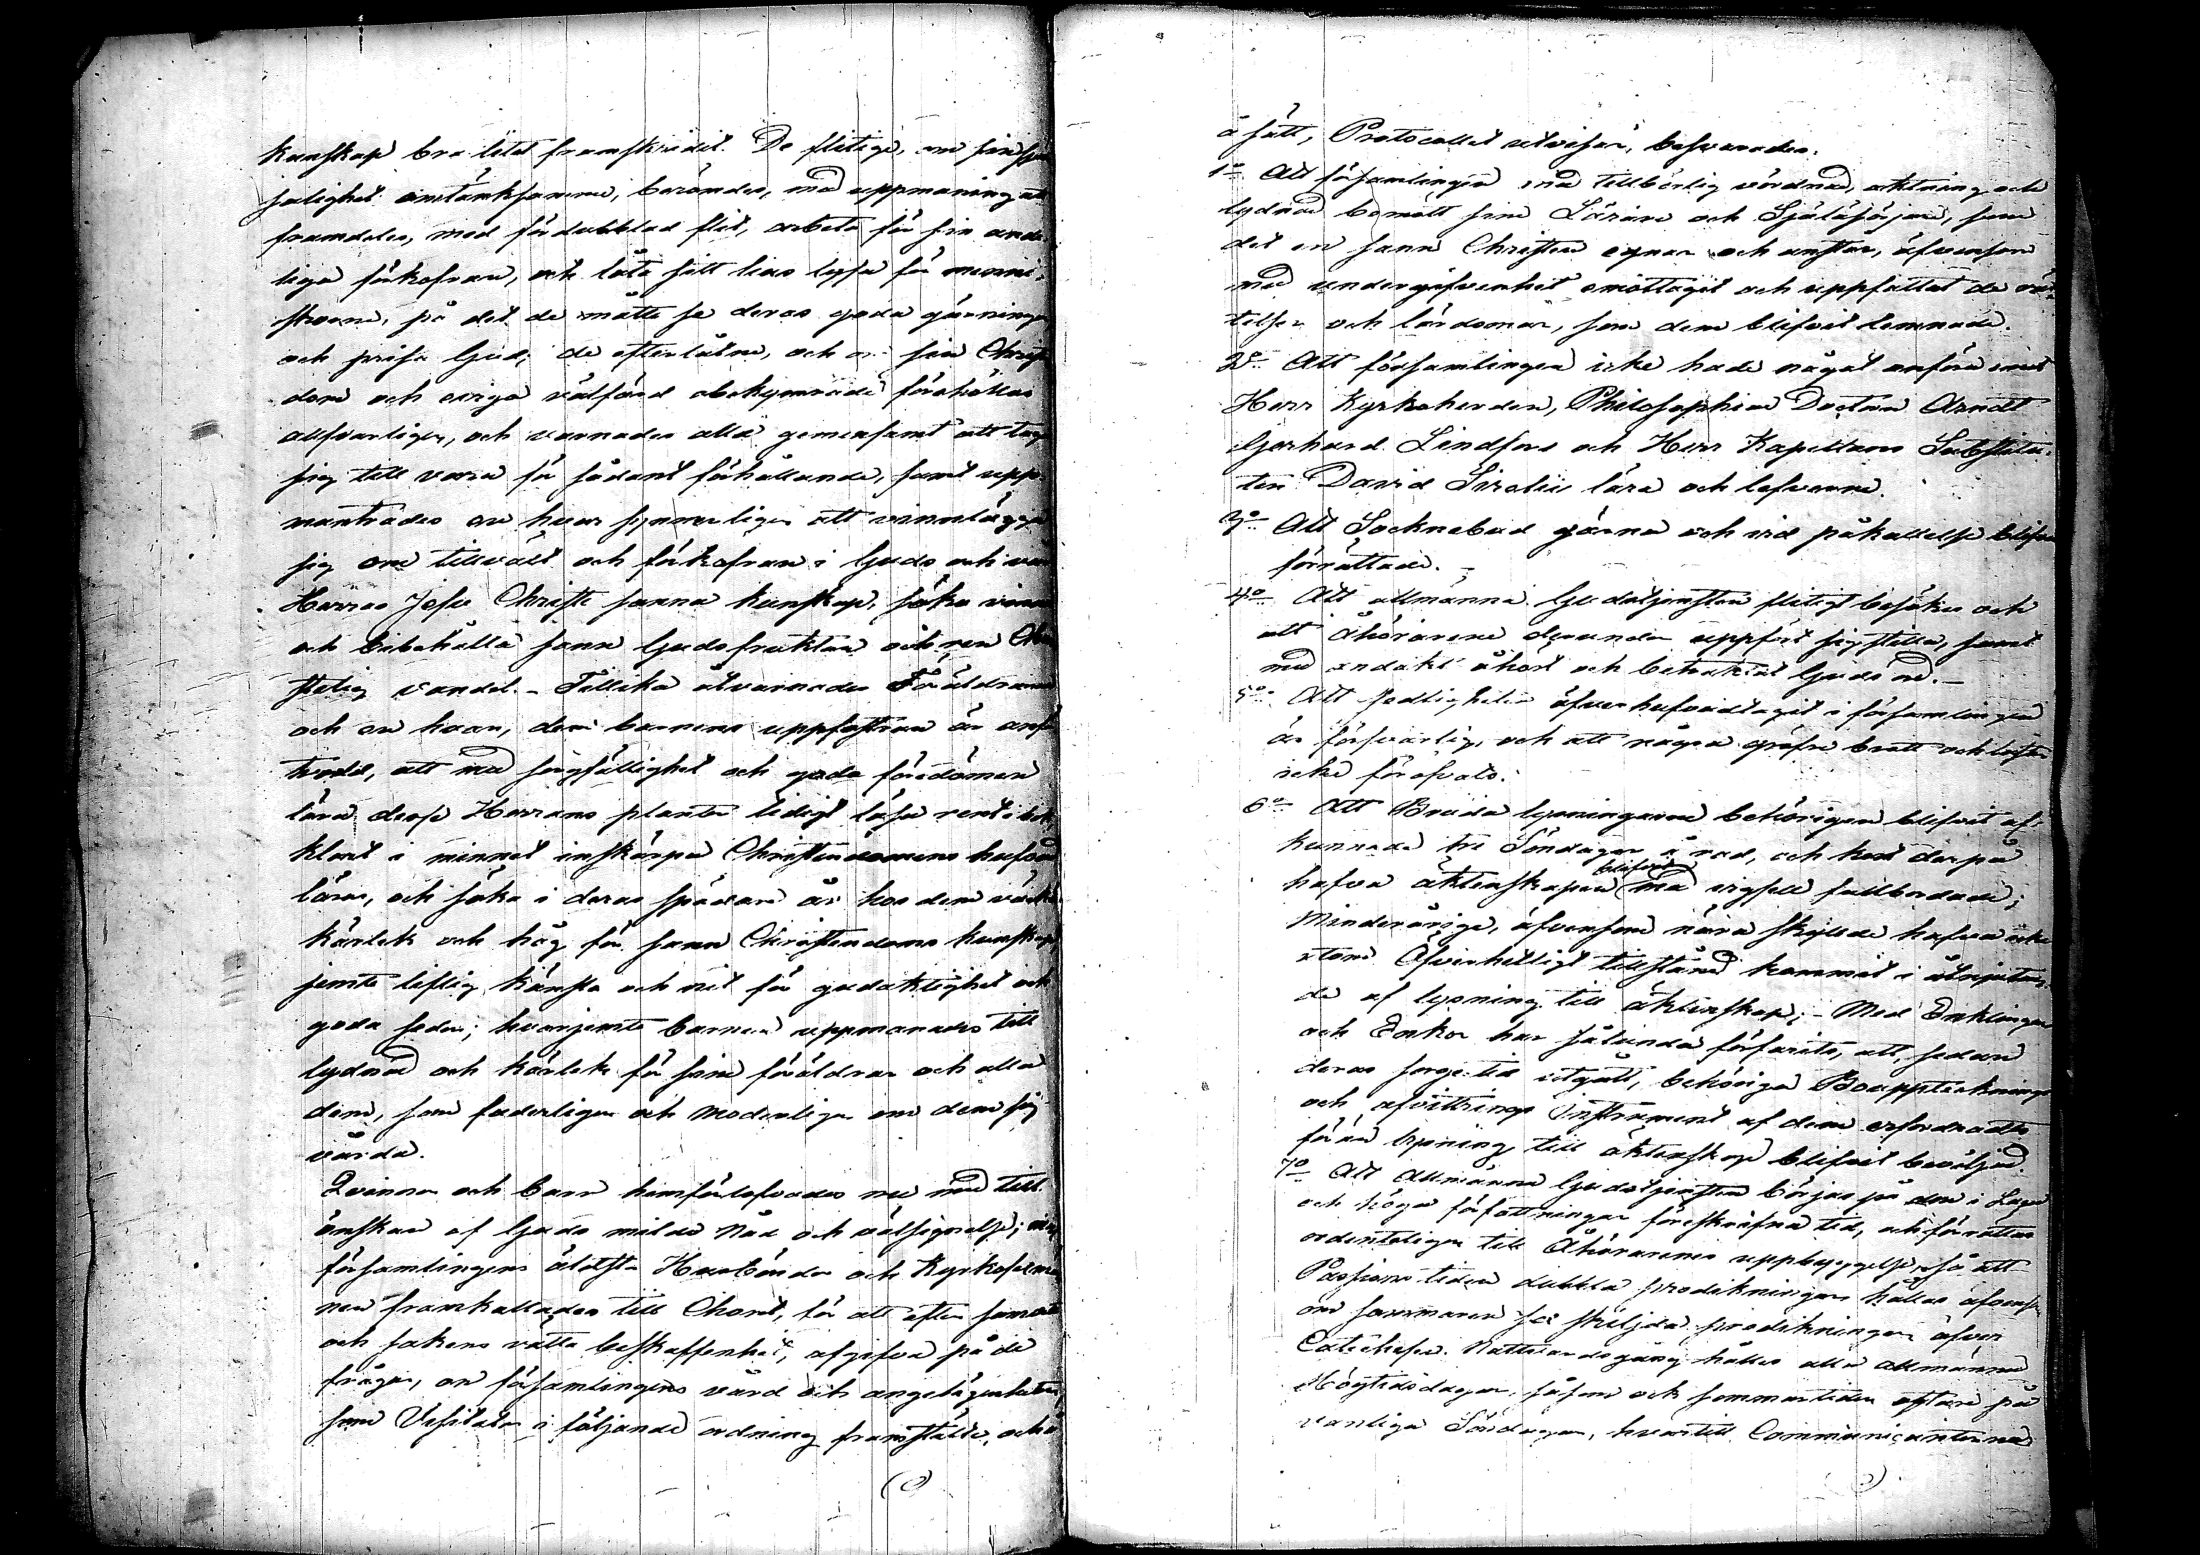 kunskap bra litet framskridit. De flitige, om sin
salighet omtänksamme, berömdes, med uppmaning att
framdeles, med fördubblad flit, arbeta för sin ande-
liga förkofran, och låta sitt lius lysa för menni-
skorna, på det de måtte se deras goda gärningar
och prisa Gud; de efterlåtne, och om sin Christen-
dom och eviga välfärd obekymrade förehöllos
allfvarligen, och varnades alla gemensamt att taga
sig till vara för sådant förhållande, samt upp-
muntrades en hvar synnerligen att vinnlägga
sig om tillväxt och förkofran i Guds och vår
Herras Jesu Christi sanna kunskap, söka vinna
och bibehålla sann Gudsfruktan och ren Chri-
stelig vandel. - Tillika åtvarnades Föräldrarne
och en hvar, dem barnens uppfostran är anför-
trodd, att med sorgfällighet och goda föredömen
lära desse Herrans plantor tidigt läsa rent i bok,
klart i minnet inskärpa Christendomens hufvud
läror, och söka i deras spädare år hos dem väcka
kärlek och håg för sann Christendoms kunskap
jemte liflig känsla och nit för gudaktighet och
goda seder; hvarjemte barnen uppmanades till
lydnad och kärlek för sina föräldrar och alla
dem, som faderligen och moderligen om dem sig
vårda.
Qvinnor och barn hemförlofvades nu med till-
önskan af Guds milda Nåd och välsignelse; men
församlingens äldsta Husbönder och Kyrkoföre-
män framkallades till Choret, för att efter samvete
och sakens rätta beskaffenhet, afgifva på de
frågor, om församlingens vård och angelägenheter,
som Visitator i följande ordning framställde, och
å sätt, Protocollet utvisar, besvarades:
1o Att församlingen med tillbörlig vördnad, aktning och
lydnad bemött sine Lärare och Själasörjare, som
det en sann Christen egnar och anstår, äfvensom
med undergifvenhet emottagit och uppfattat de rät-
telser och lärdomar, som dem blifvit lemnade.
2o Att församlingen icke hade något anföra emot
Herr Kyrkoherden, Philosophiae Doctorn Arndt
Gerhard Lindfors och Herr Kapellans Substitu-
ten David Sirelii lära och lefverne.
3o Att Socknebud gärna och vid påkallelse blifvit
förrättade. -
4o Att allmänna Gudstjensten flitigt besökes och
att Åhörarene derunder uppfört sig stilla, samt
med andakt åhört och betraktat Guds ord. -
5o Att sedligheten öfverhufvudtaget i församlingen
är försvarlig, och att några gröfre brott och laster
icke föröfvats.
6o Att Bruda lysningarne behörigen blifvit af-
kunnade tre Söndagar å rad, och kort derpå
hafva äktenskapen blifvit med vigsel fullbordade;
Minderårige, äfvensom nära skyllde hafva icke
utom Öfverhetligt tillstånd kommit i åtnjutan-
de af lysning till äktenskap; - Med Enklingar
och Enkor har sålunda förfarits, att, sedan
deras sorge-tid utgått, behöriga Bouppteckning
och afvittrings instrument af dem erfordrats
förän lysning till äktenskap blifvit beviljad.
7o Att Allmänna Gudstjensten börjas på den i Lag
och höga författningar föreskrifna tid, och förrättas
ordenteligen till Åhörarenes uppbyggelse, så att
Passions tiden dubbla predikningar hållas äfvensom
om sommaren sär skiljda predikningar öfver
Catechesen. Nattvardsgång hålles alla allmänna
Högtidsdagar, såsom och sommartiden oftare på
vanliga Söndagar, hvartill Communicanterna